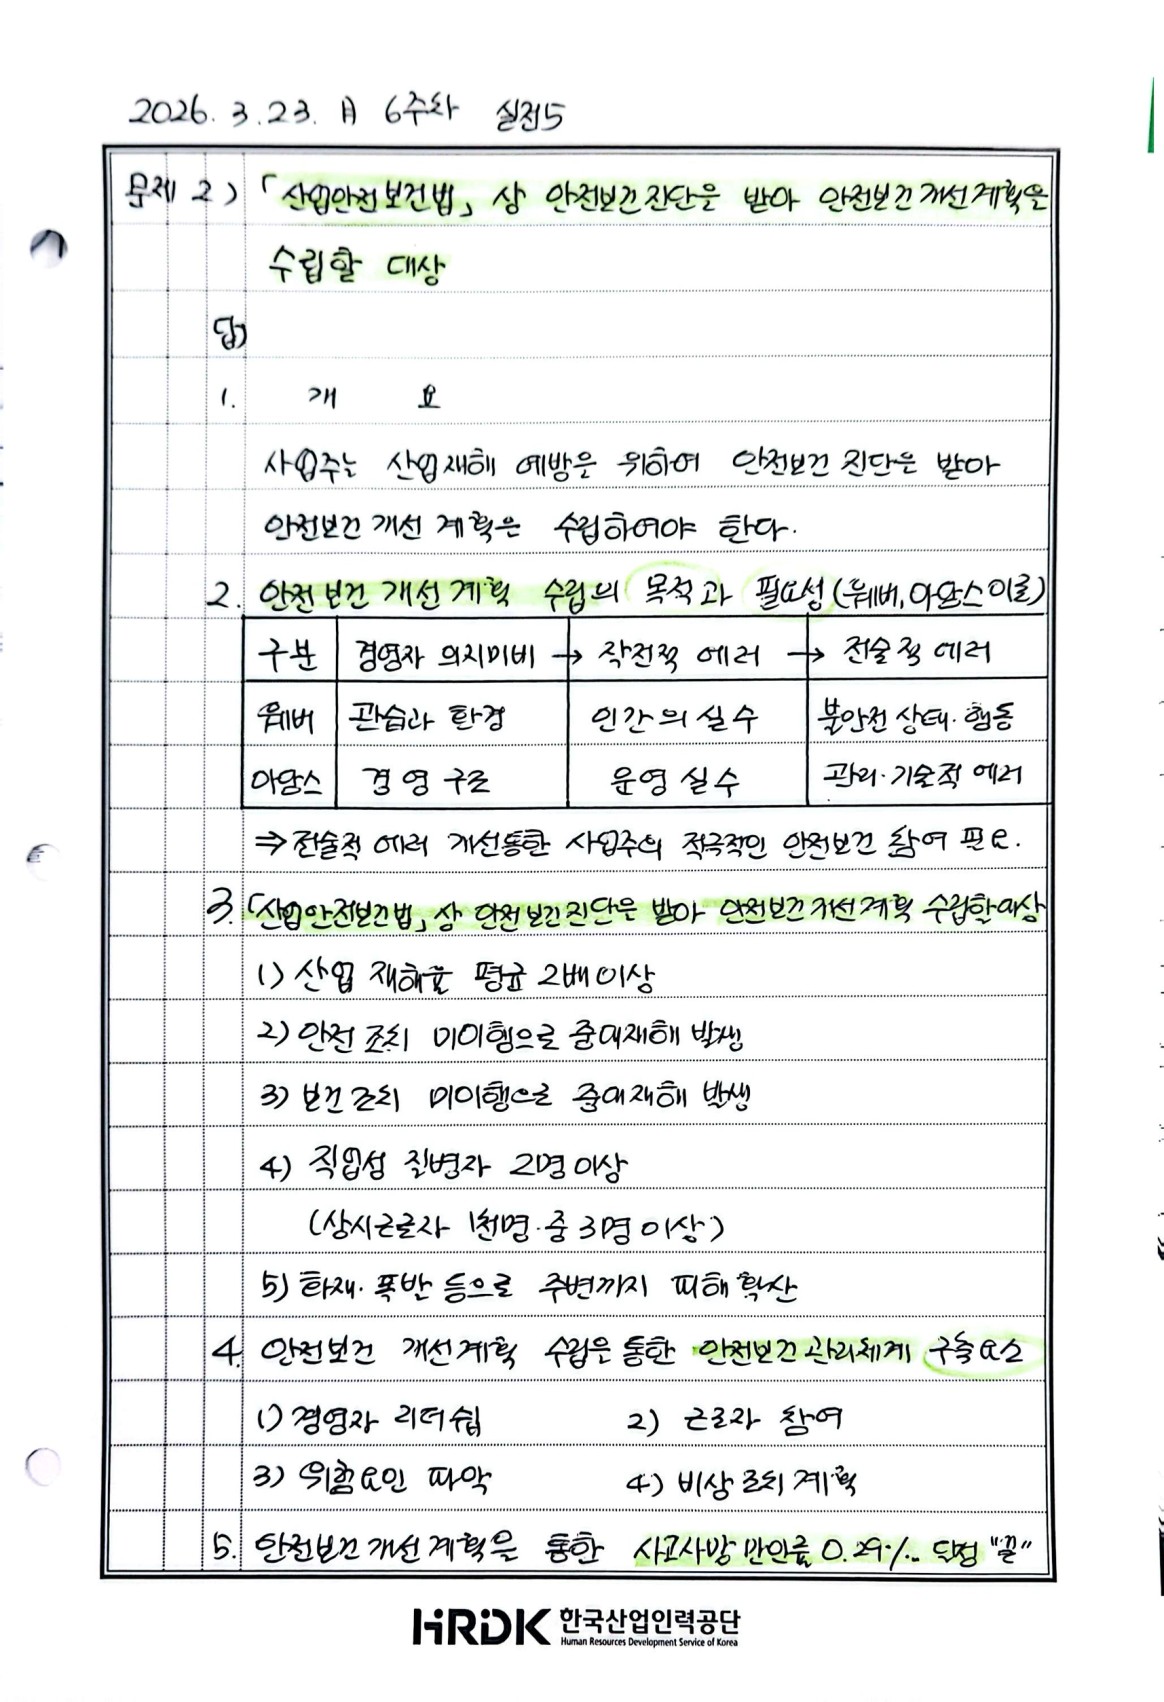 2026. 3. 23. 月 6주차 실전5
문제 2) 「산업안전보건법」상 안전보건진단을 받아 안전보건개선계획을
수립할 대상
답)
1. 개 요
사업주는 산업재해 예방을 위하여 안전보건진단을 받아
안전보건개선계획을 수립하여야 한다.
2. 안전보건개선계획 수립의 목적과 필요성(웨버, 아담스 이론)
구분 경영자 의지미비 → 작전적 에러 → 전술적 에러
웨버 관습과 환경 인간의 실수 불안전 상태·행동
아담스 경영구조 운영 실수 관리·기술적 에러
⇒ 전술적 에러 개선통한 사업주의 적극적인 안전보건 참여 필요.
3. 「산업안전보건법」상 안전보건진단을 받아 안전보건개선계획 수립할대상
1) 산업 재해율 평균 2배이상
2) 안전조치 미이행으로 중대재해 발생
3) 보건조치 미이행으로 중대재해 발생
4) 직업성 질병자 2명이상
(상시근로자 1천명·중 3명이상)
5) 화재·폭발 등으로 주변까지 피해확산
4. 안전보건 개선계획 수립을 통한 안전보건관리체계 구축요소
1) 경영자 리더쉽 2) 근로자 참여
3) 위험요인 파악 4) 비상조치계획
5. 안전보건개선계획을 통한 사고사망만인률 0.29‱ 달성 "끝"
HRDK 한국산업인력공단
Human Resources Development Service of Korea